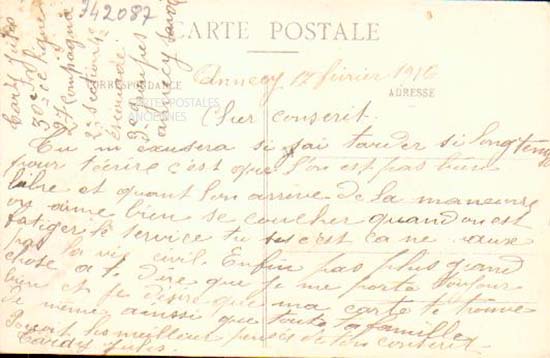 342087
CARTE POSTALE
CORRESPONDANCE
ADRESSE
CARTES POSTALES
ANCIENNES
Cardy Jules
30e
27 Compagnie
2e section
escouade
3e groupes
annecy
Annecy 17 février 1916
Cher conscrit.
Tu m'excusera si j'ai tarder si longtemps
pour t'écrire c'est que l'on est pas bien
libre et quant l'on arrive de la maneuvre
on aime bien se coucher quand on est
fatiger le service tu sais c'est ca ne vaux
pas la vie civil. Enfin pas plus grand
chose a te dire que je me porte toujour
bien et je désire que ma carte te trouve
de même aussi que toute ta famille
Reçoit les meilleur pensés de ton conscrit
Cardy Jules.